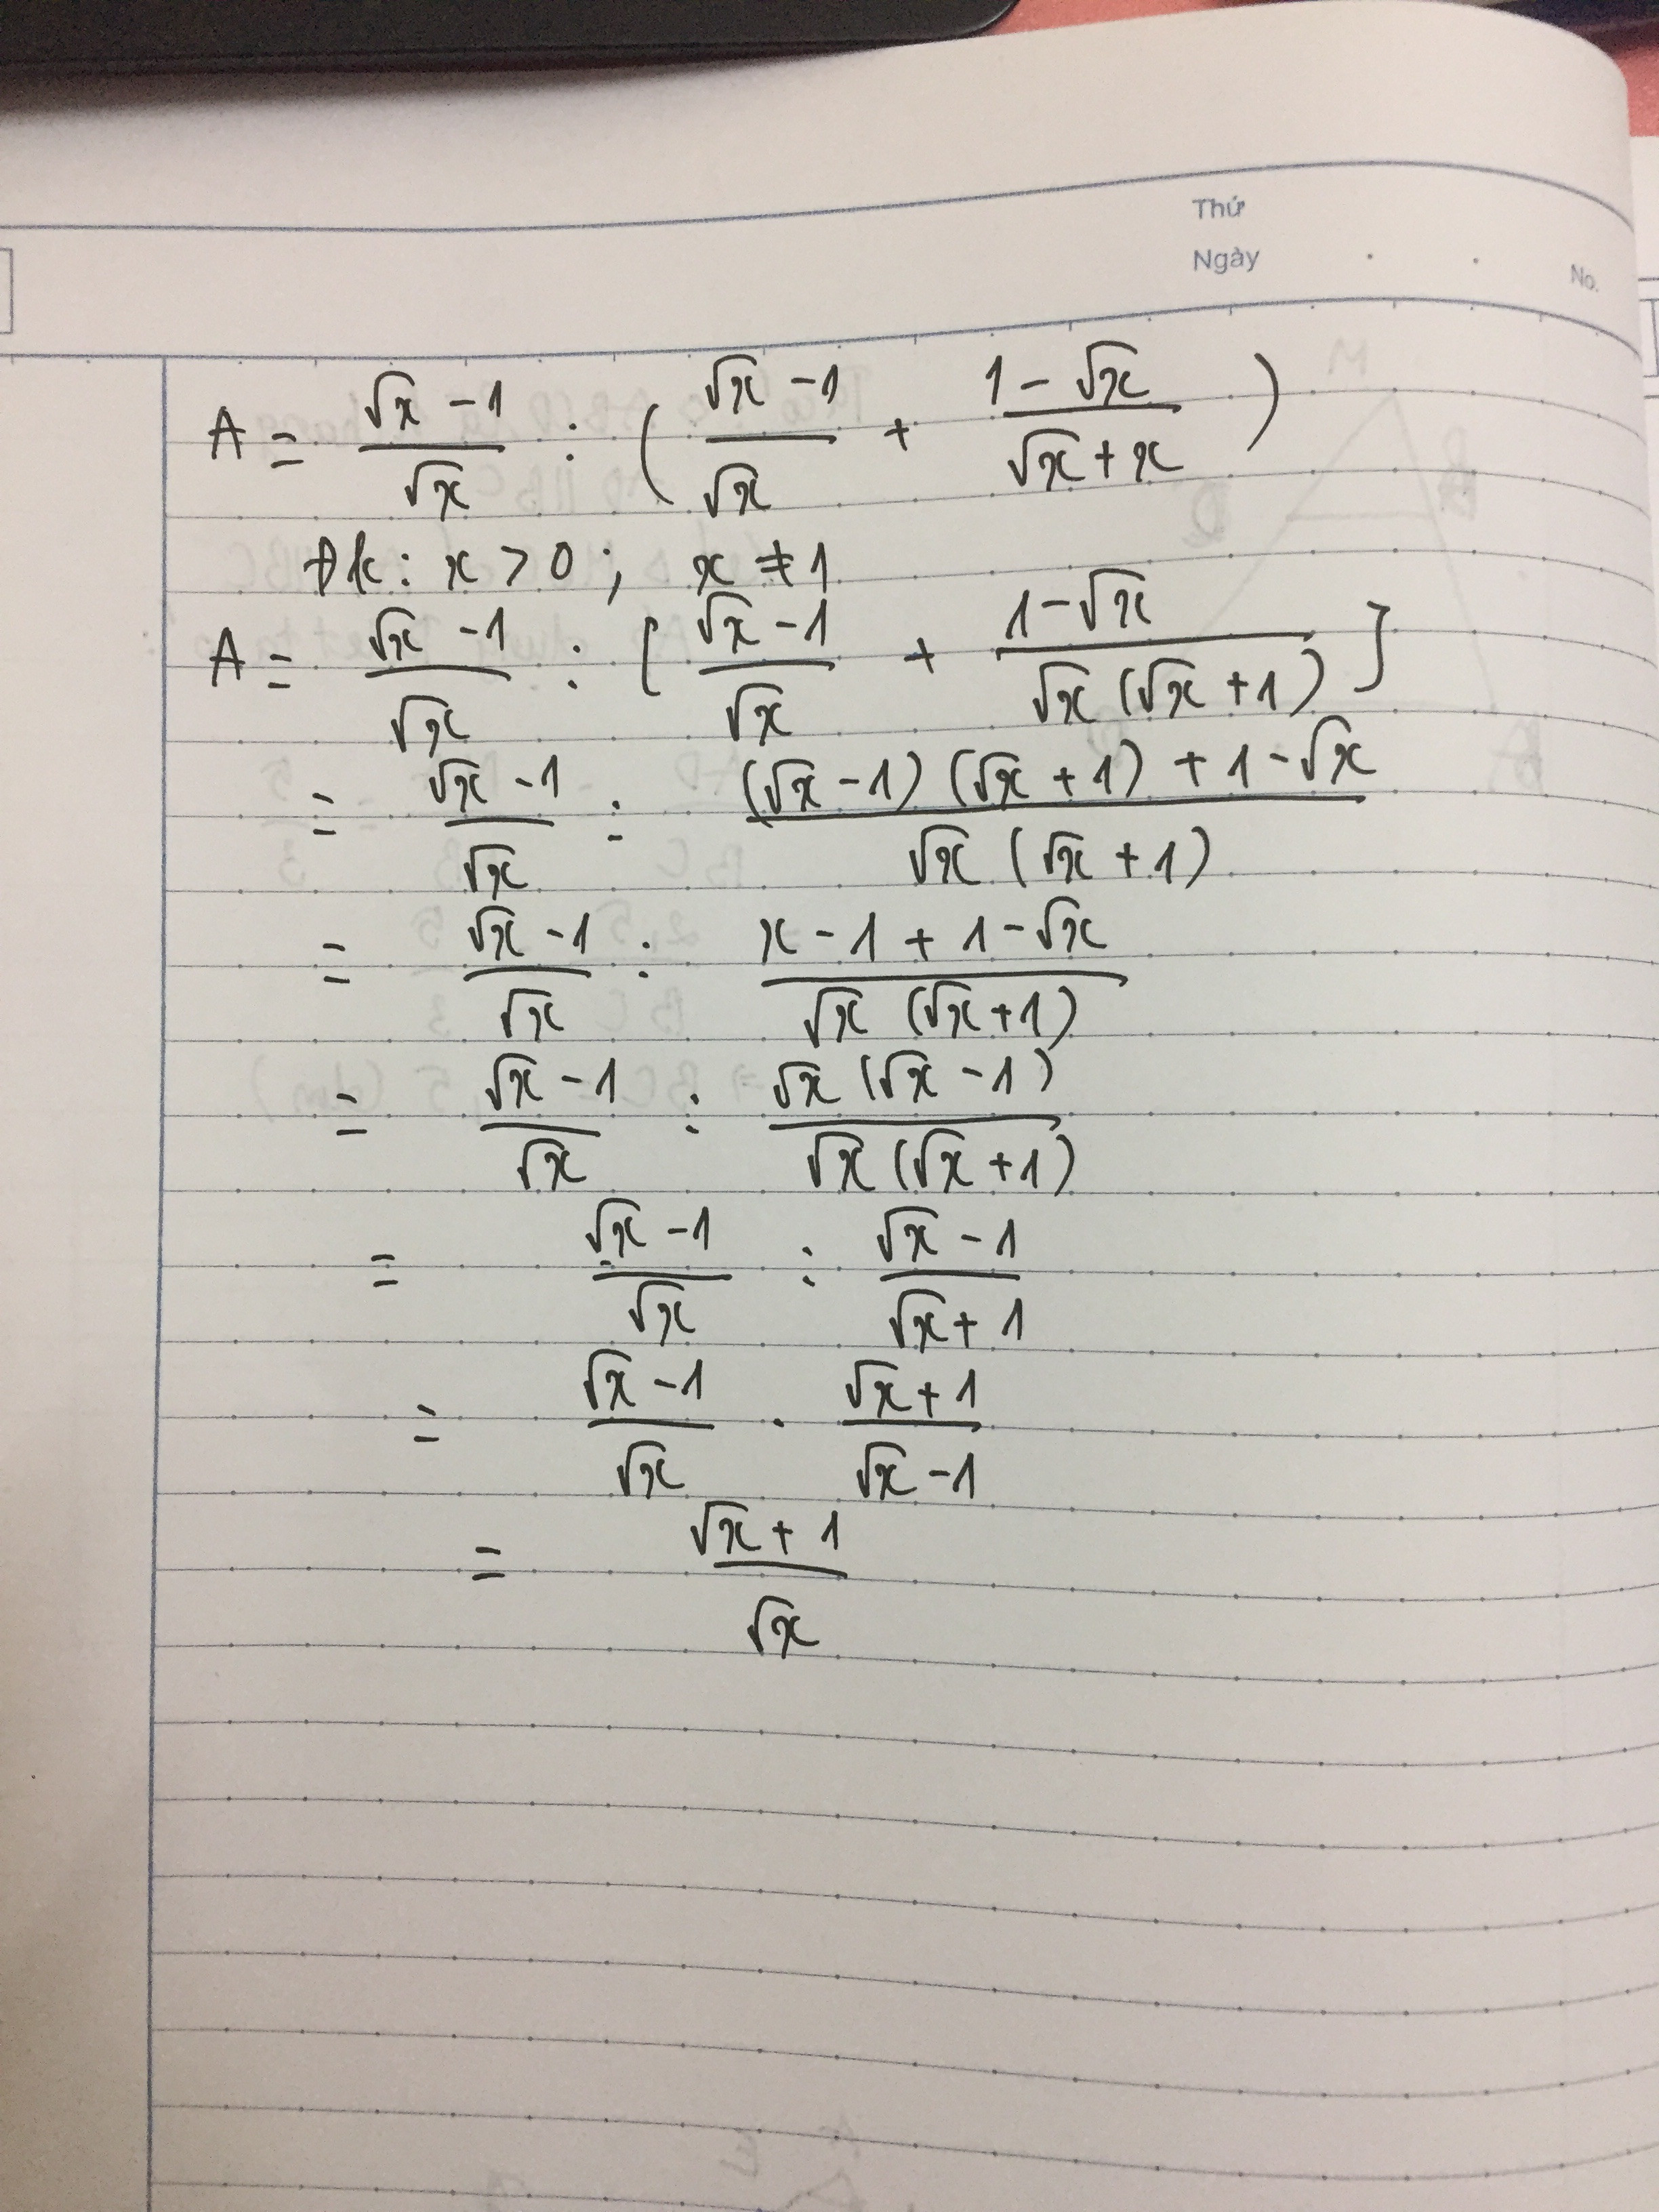 Thứ
Ngày
No.
A = (√x - 1)/√x : ( (√x - 1)/√x + (1 - √x)/(√x + x) )
Đk: x > 0 ; x ≠ 1
A = (√x - 1)/√x : [ (√x - 1)/√x + (1 - √x)/(√x (√x + 1)) ]
= (√x - 1)/√x : ((√x - 1) (√x + 1) + 1 - √x)/(√x (√x + 1))
= (√x - 1)/√x : (x - 1 + 1 - √x)/(√x (√x + 1))
= (√x - 1)/√x : (√x (√x - 1))/(√x (√x + 1))
= (√x - 1)/√x : (√x - 1)/(√x + 1)
= (√x - 1)/√x . (√x + 1)/(√x - 1)
= (√x + 1)/√x